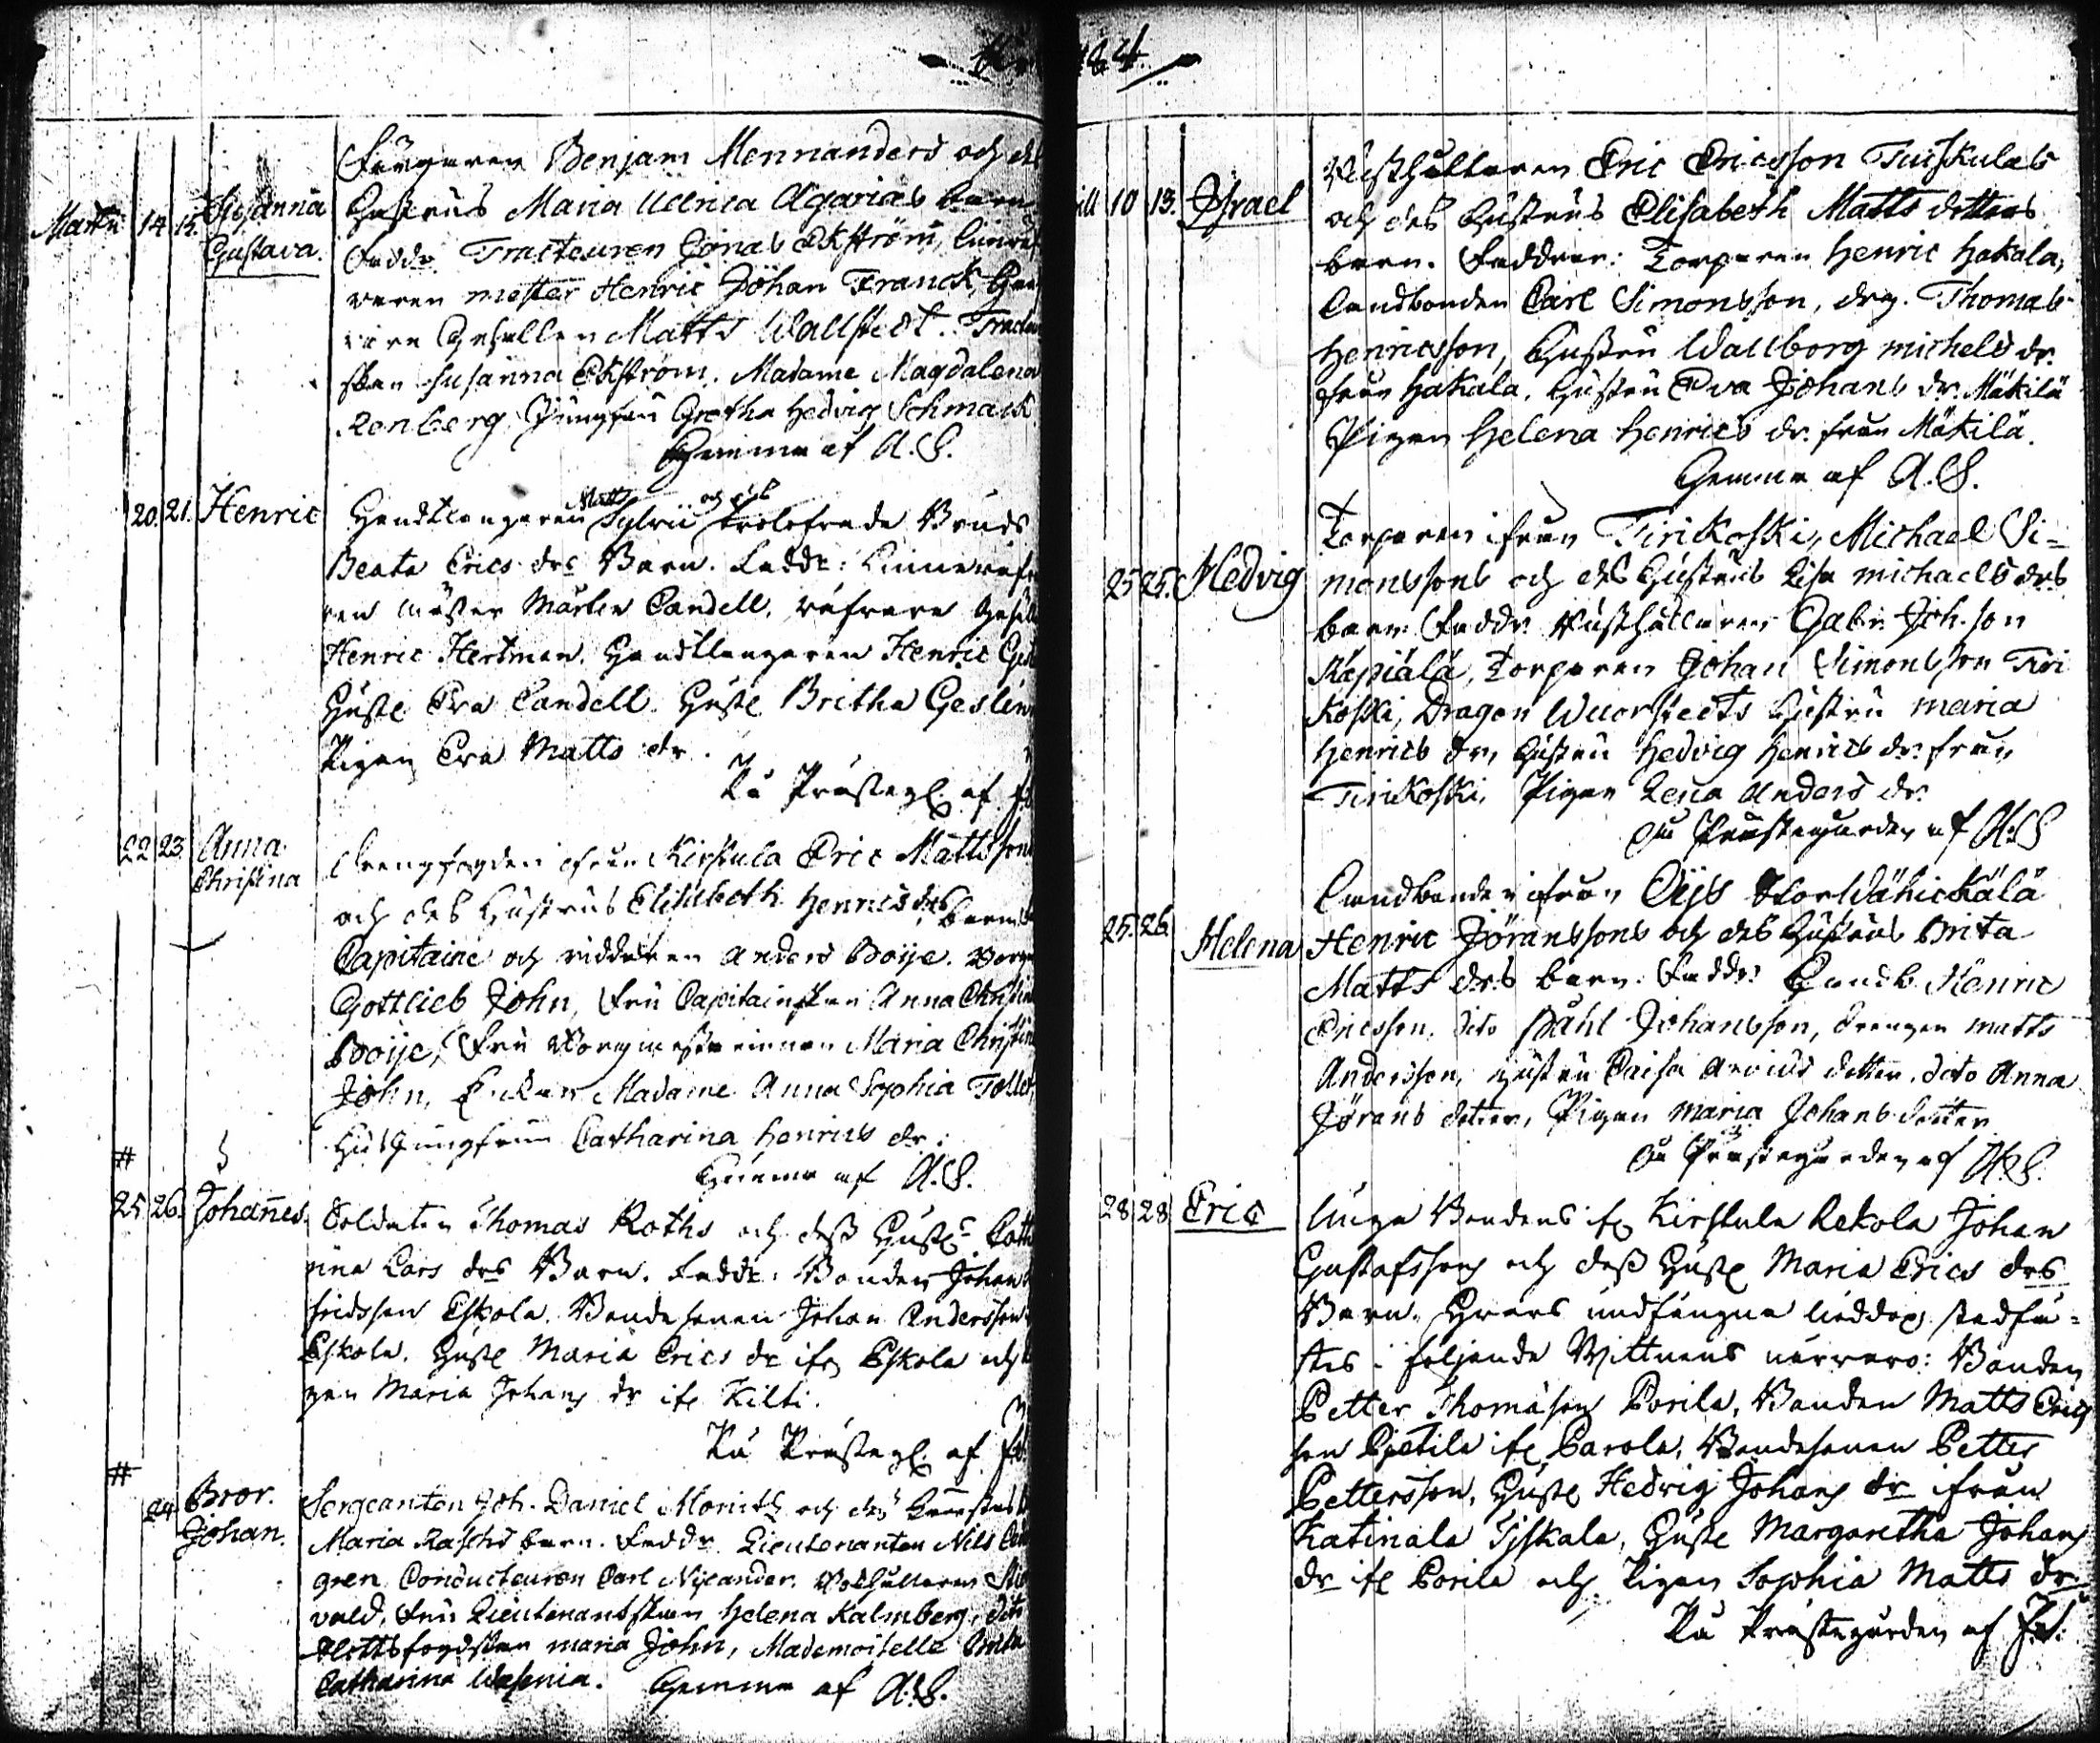 Färgaren Benjam Mennanders och des
Martii 14. 15. Susanna Gustava. Hustrus Maria Ulrica Agarias barn
Faddr. Tracteuren Jonas Ekström, Linnewäf
varen mester Henric Johan Franck, Gar
vare Gesellen Matts Wallstedt. Tracteur
skan Susanna Ekström. Madame Magdalena
Renberg Jungfru Gretha Hedvig Schmack.
Hemma af A.S.
20. 21. Henric Handtlangaren Matts Sylvii och des trolofvade Bruds
Beata Erics drs Barn. Faddr: Linnewäfva
ren mäster Mårten Candell, väfvare Gesell
Henric Hertman. Handtlangaren Henric
Hustr Eva Candell. Hustr Britha
Pigan Eva Matts dr.
På Prästeg. af
22 23. Anna Christina Drengfogden ifrån Kirstula Eric Mattssons
och des Hustrus Elisabeth Henrics drs barn
Capitaine och riddaren Anders Boije. Borgm
Gottlieb John, Fru Capitainskan Anna Christina
Boije, Fru Borgmesterinnan Maria Christina
John, Enkan Madame Anna Sophia Tollet,
Hus Jungfrun Catharina Henrics dr:
Hemma af A.S.
#
25 26. Johannes. Soldaten Thomas Roths och dess Hustrs Cath
rina Lars drs Barn. Faddr: Bonden Johan
fridsson Eskola. Bonde sonen Johan Andersson
Eskola. Hustr Maria Erics dr ifr Eskola och
gan Maria Johans dr ifr Kilti.
På Prästeg. af
#
24 Bror. Johan. Sergeanten Joh. Daniel Morith och des
Maria Raschs barn. Faddr Lieutenanten Nils
gren Conducteuren Carl Nyleander.
vald, Fru Lieutenantskan Helena Kalmberg, dito
Slottsfogdskan Maria John, Mademoiselle Brita
Catharina Wasenia. Hemma af A.S.
124.
Rusthollaren Eric Ericsson Tuiskulas
ill 10 13. Israel och des Hustrus Elisabeth Matts dotters
barn. Faddrar: Torparen Henric Hakala,
Landbonden Carl Simonsson, drg. Thomas
Henricsson, Hustru Wallborg Michels dr.
från Hakala, Hustru Eva Johans dr. Mäkilä
Pigan Helena Henrics dr. från Mäkilä.
Hemma af A.S.
Torparen ifrån Tirikoski, Michael Si=
25 25. Hedvig monssons och des Hustrus Lisa Michaels drs
barn. Faddr. Rusthållaren Gabr. Joh.son
Käpiälä, Torparen Johan Simonsson Tiri
koski, Dragon Wuorstedts Hustru Maria
Henrics dr, Hustru Hedvig Henrics dr. från
Tirikoski, Pigan Lena Anders dr.
På Prästegården af A.S
Landbonden ifrån Oijs StorWähickälä
25. 26. Helena Henric Jöranssons och des Hustrus Brita
Matts drs barn. Faddr: Landb. Henric
Ericsson, dito Påhl Johansson, Drengen Matts
Andersson, Hustru Caisa Arvids dotter, dito Anna
Jörans dotter, Pigan Maria Johans dotter
På Prästegården af A.S.
28 28 Eric Unga Bondens ifr Kirstula Rekola Johan
Gustafssons och dess Hustr Maria Erics drs
Barn. Hvars undfångna nöddop stadfä=
stes i följande Wittnens närvaro: Bonden
Petter Thomasson Porila, Bonden Matts Erics
son Pietilä ifr Parola, Bondesonen Petter
Pettersson, Hustr Hedvig Johans dr ifrån
Katinala Ijskala, Hustr Margaretha Johans
dr ifr Porila och Pigan Sophia Matts dr
På Prästegården af